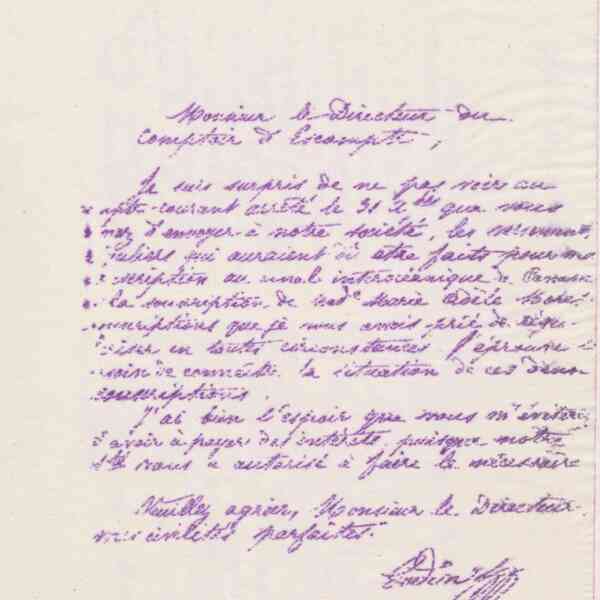 Monsieur le Directeur du
Comptoir d'Escompte,
Je suis surpris de ne pas voir au
compte-courant arrêté le 31 Xbre que vous
venez d'envoyer à notre société, les versements
qui auraient dû être faits pour ma
souscription au canal interocéanique de Panama
la souscription de Made Marie Adèle
souscriptions que je vous avais prié de
en toutes circonstances. J'éprouve le
besoin de connaître la situation de ces deux
souscriptions.
J'ai bien l'espoir que vous m'éviterez
d'avoir à payer des intérêts puisque notre
Sté vous a autorisé à faire le nécessaire
Veuillez agréer, Monsieur le Directeur,
mes civilités parfaites.
Godin